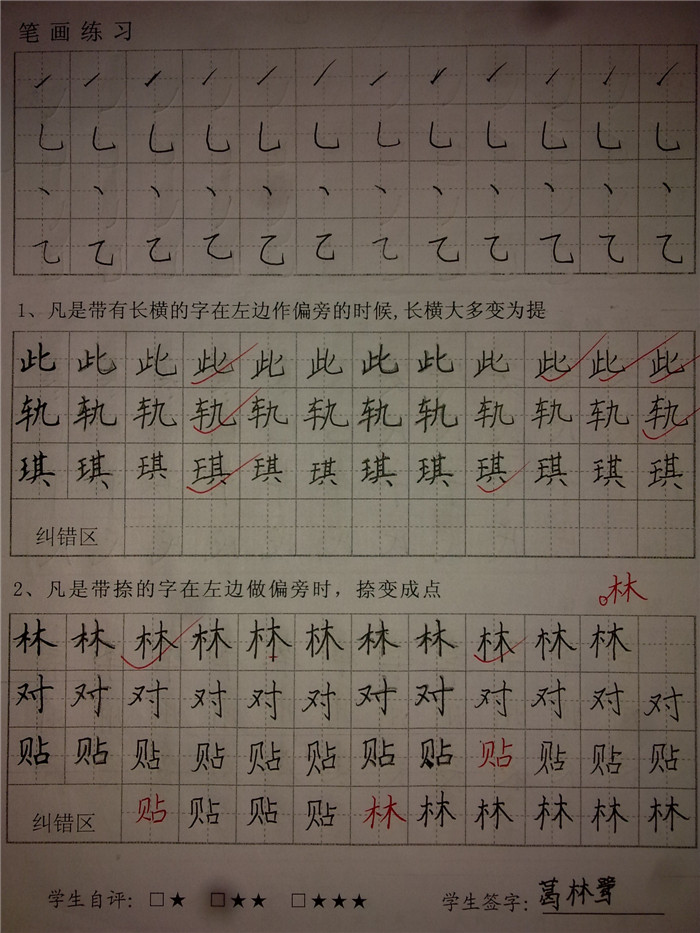 笔画练习
1、凡是带有长横的字在左边作偏旁的时候,长横大多变为提
此此此此此此此此此此此此
轨轨轨轨轨轨轨轨轨轨轨轨
琪琪琪琪琪琪琪琪琪琪琪琪
纠错区
2、凡是带捺的字在左边做偏旁时，捺变成点
林
林林林林林林林林林林林
对对对对对对对对对对对对
贴贴贴贴贴贴贴贴贴贴贴贴
纠错区 贴贴贴贴林林林林林林
学生自评：□★ □★★ □★★★ 学生签字：葛林鹭